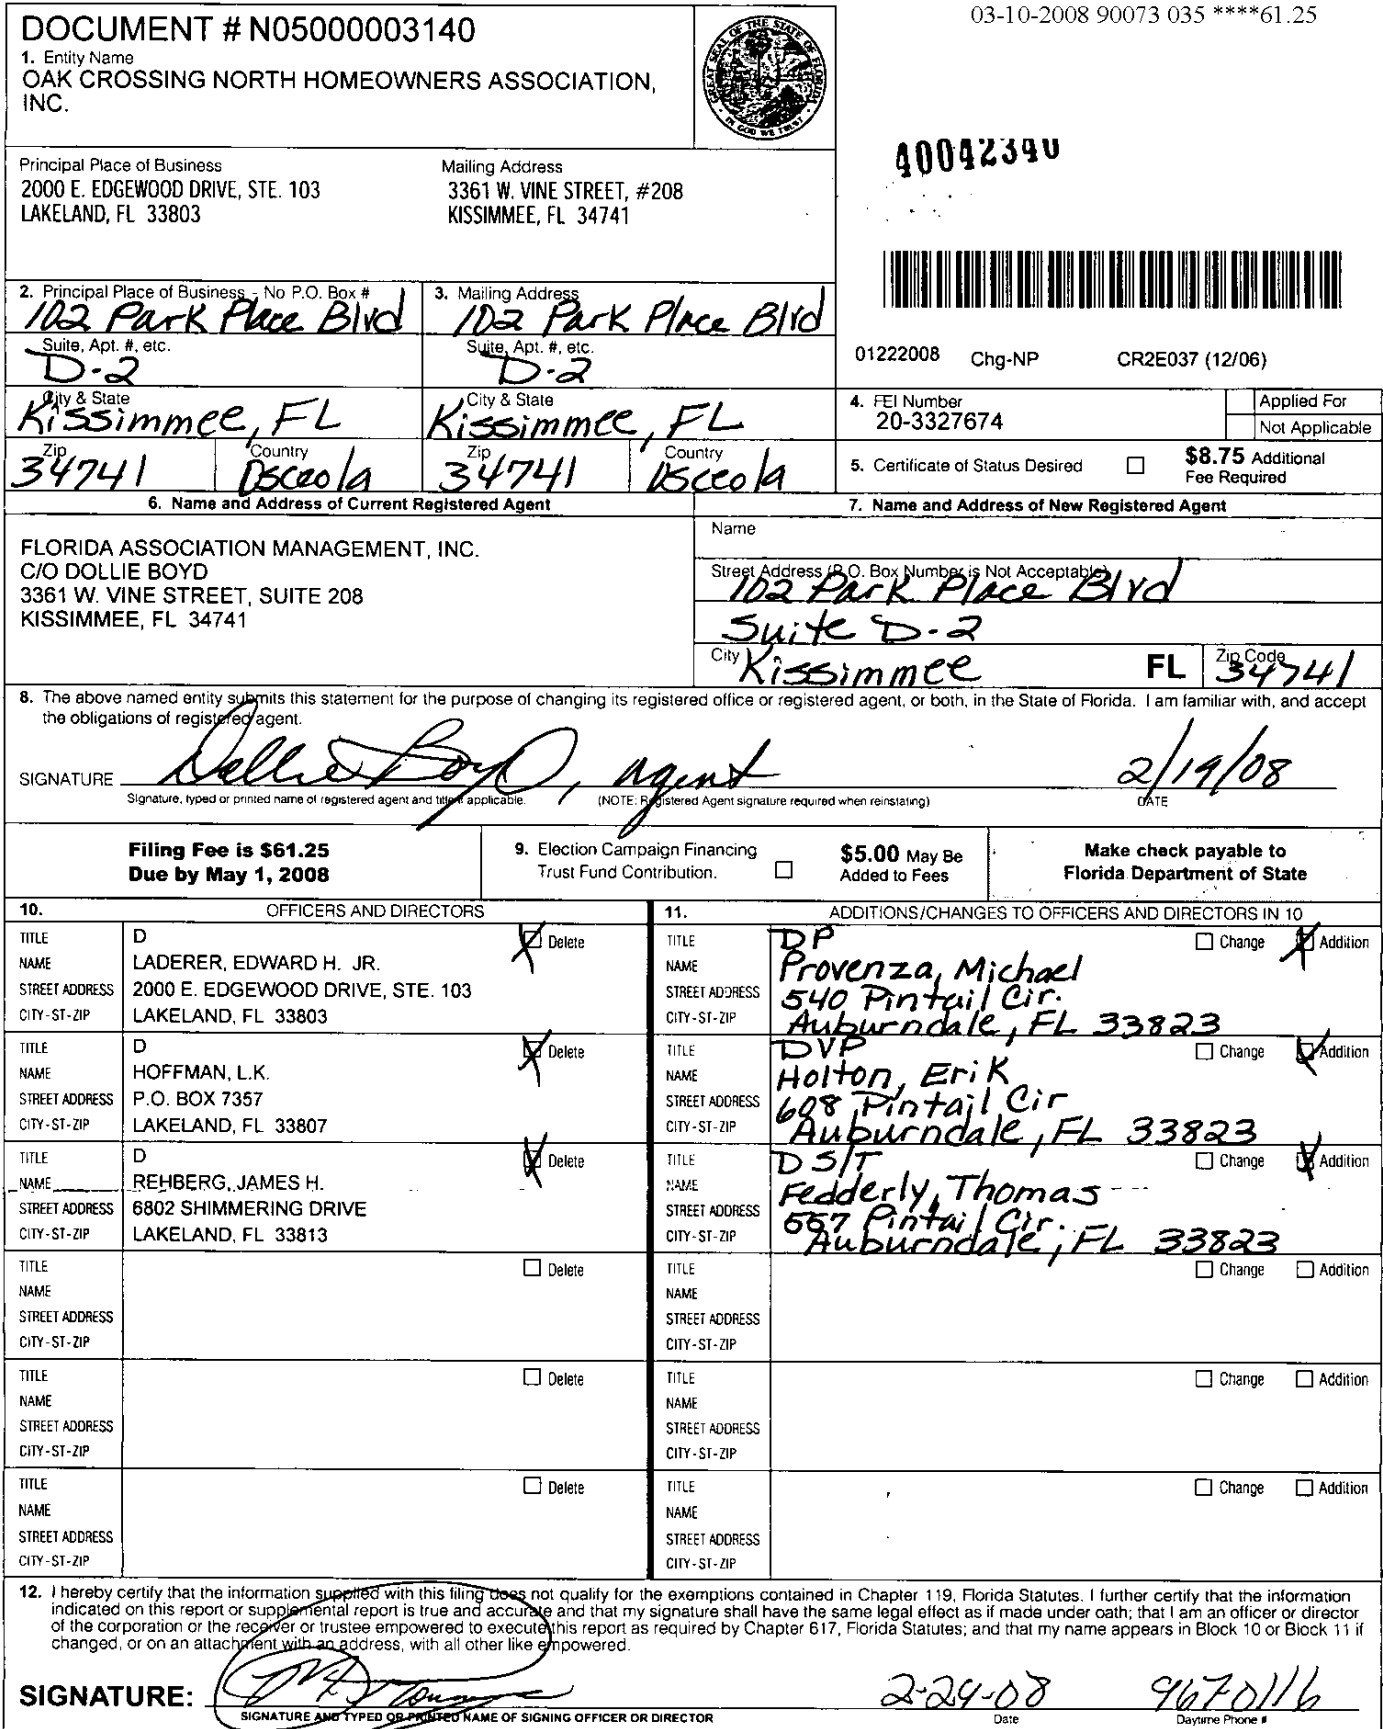 03-10-2008 90073 035 ****61.25
DOCUMENT # N05000003140
1. Entity Name
OAK CROSSING NORTH HOMEOWNERS ASSOCIATION,
INC.
GREAT SEAL OF THE STATE OF FLORIDA
IN GOD WE TRUST
40042340
Principal Place of Business
2000 E. EDGEWOOD DRIVE, STE. 103
LAKELAND, FL 33803
Mailing Address
3361 W. VINE STREET, #208
KISSIMMEE, FL 34741
2. Principal Place of Business - No P.O. Box #
102 Park Place Blvd
Suite, Apt. #, etc.
D-2
City & State
Kissimmee, FL
Zip
34741
Country
Osceola
3. Mailing Address
102 Park Place Blvd
Suite, Apt. #, etc.
D-2
City & State
Kissimmee, FL
Zip
34741
Country
Osceola
01222008 Chg-NP CR2E037 (12/06)
4. FEI Number
20-3327674
Applied For
Not Applicable
5. Certificate of Status Desired
$8.75 Additional
Fee Required
6. Name and Address of Current Registered Agent
FLORIDA ASSOCIATION MANAGEMENT, INC.
C/O DOLLIE BOYD
3361 W. VINE STREET, SUITE 208
KISSIMMEE, FL 34741
7. Name and Address of New Registered Agent
Name
Street Address (P.O. Box Number is Not Acceptable)
102 Park Place Blvd
Suite D-2
City
Kissimmee
FL
Zip Code
34741
8. The above named entity submits this statement for the purpose of changing its registered office or registered agent, or both, in the State of Florida. I am familiar with, and accept
the obligations of registered agent.
SIGNATURE Dollie Boyd, agent 2/19/08
Signature, typed or printed name of registered agent and title if applicable. (NOTE: Registered Agent signature required when reinstating) DATE
Filing Fee is $61.25
Due by May 1, 2008
9. Election Campaign Financing
Trust Fund Contribution.
$5.00 May Be
Added to Fees
Make check payable to
Florida Department of State
10. OFFICERS AND DIRECTORS
TITLE D Delete
NAME LADERER, EDWARD H. JR.
STREET ADDRESS 2000 E. EDGEWOOD DRIVE, STE. 103
CITY-ST-ZIP LAKELAND, FL 33803
TITLE D Delete
NAME HOFFMAN, L.K.
STREET ADDRESS P.O. BOX 7357
CITY-ST-ZIP LAKELAND, FL 33807
TITLE D Delete
NAME REHBERG, JAMES H.
STREET ADDRESS 6802 SHIMMERING DRIVE
CITY-ST-ZIP LAKELAND, FL 33813
TITLE Delete
NAME
STREET ADDRESS
CITY-ST-ZIP
TITLE Delete
NAME
STREET ADDRESS
CITY-ST-ZIP
TITLE Delete
NAME
STREET ADDRESS
CITY-ST-ZIP
11. ADDITIONS/CHANGES TO OFFICERS AND DIRECTORS IN 10
TITLE DP Change Addition
NAME Provenza, Michael
STREET ADDRESS 540 Pintail Cir.
CITY-ST-ZIP Auburndale, FL 33823
TITLE DVP Change Addition
NAME Holton, Erik
STREET ADDRESS 608 Pintail Cir
CITY-ST-ZIP Auburndale, FL 33823
TITLE D S/T Change Addition
NAME Fedderly, Thomas
STREET ADDRESS 557 Pintail Cir.
CITY-ST-ZIP Auburndale, FL 33823
TITLE Change Addition
NAME
STREET ADDRESS
CITY-ST-ZIP
TITLE Change Addition
NAME
STREET ADDRESS
CITY-ST-ZIP
TITLE Change Addition
NAME
STREET ADDRESS
CITY-ST-ZIP
12. I hereby certify that the information supplied with this filing does not qualify for the exemptions contained in Chapter 119, Florida Statutes. I further certify that the information
indicated on this report or supplemental report is true and accurate and that my signature shall have the same legal effect as if made under oath; that I am an officer or director
of the corporation or the receiver or trustee empowered to execute this report as required by Chapter 617, Florida Statutes; and that my name appears in Block 10 or Block 11 if
changed, or on an attachment with an address, with all other like empowered.
SIGNATURE: 2-29-08 9670116
SIGNATURE AND TYPED OR PRINTED NAME OF SIGNING OFFICER OR DIRECTOR Date Daytime Phone #